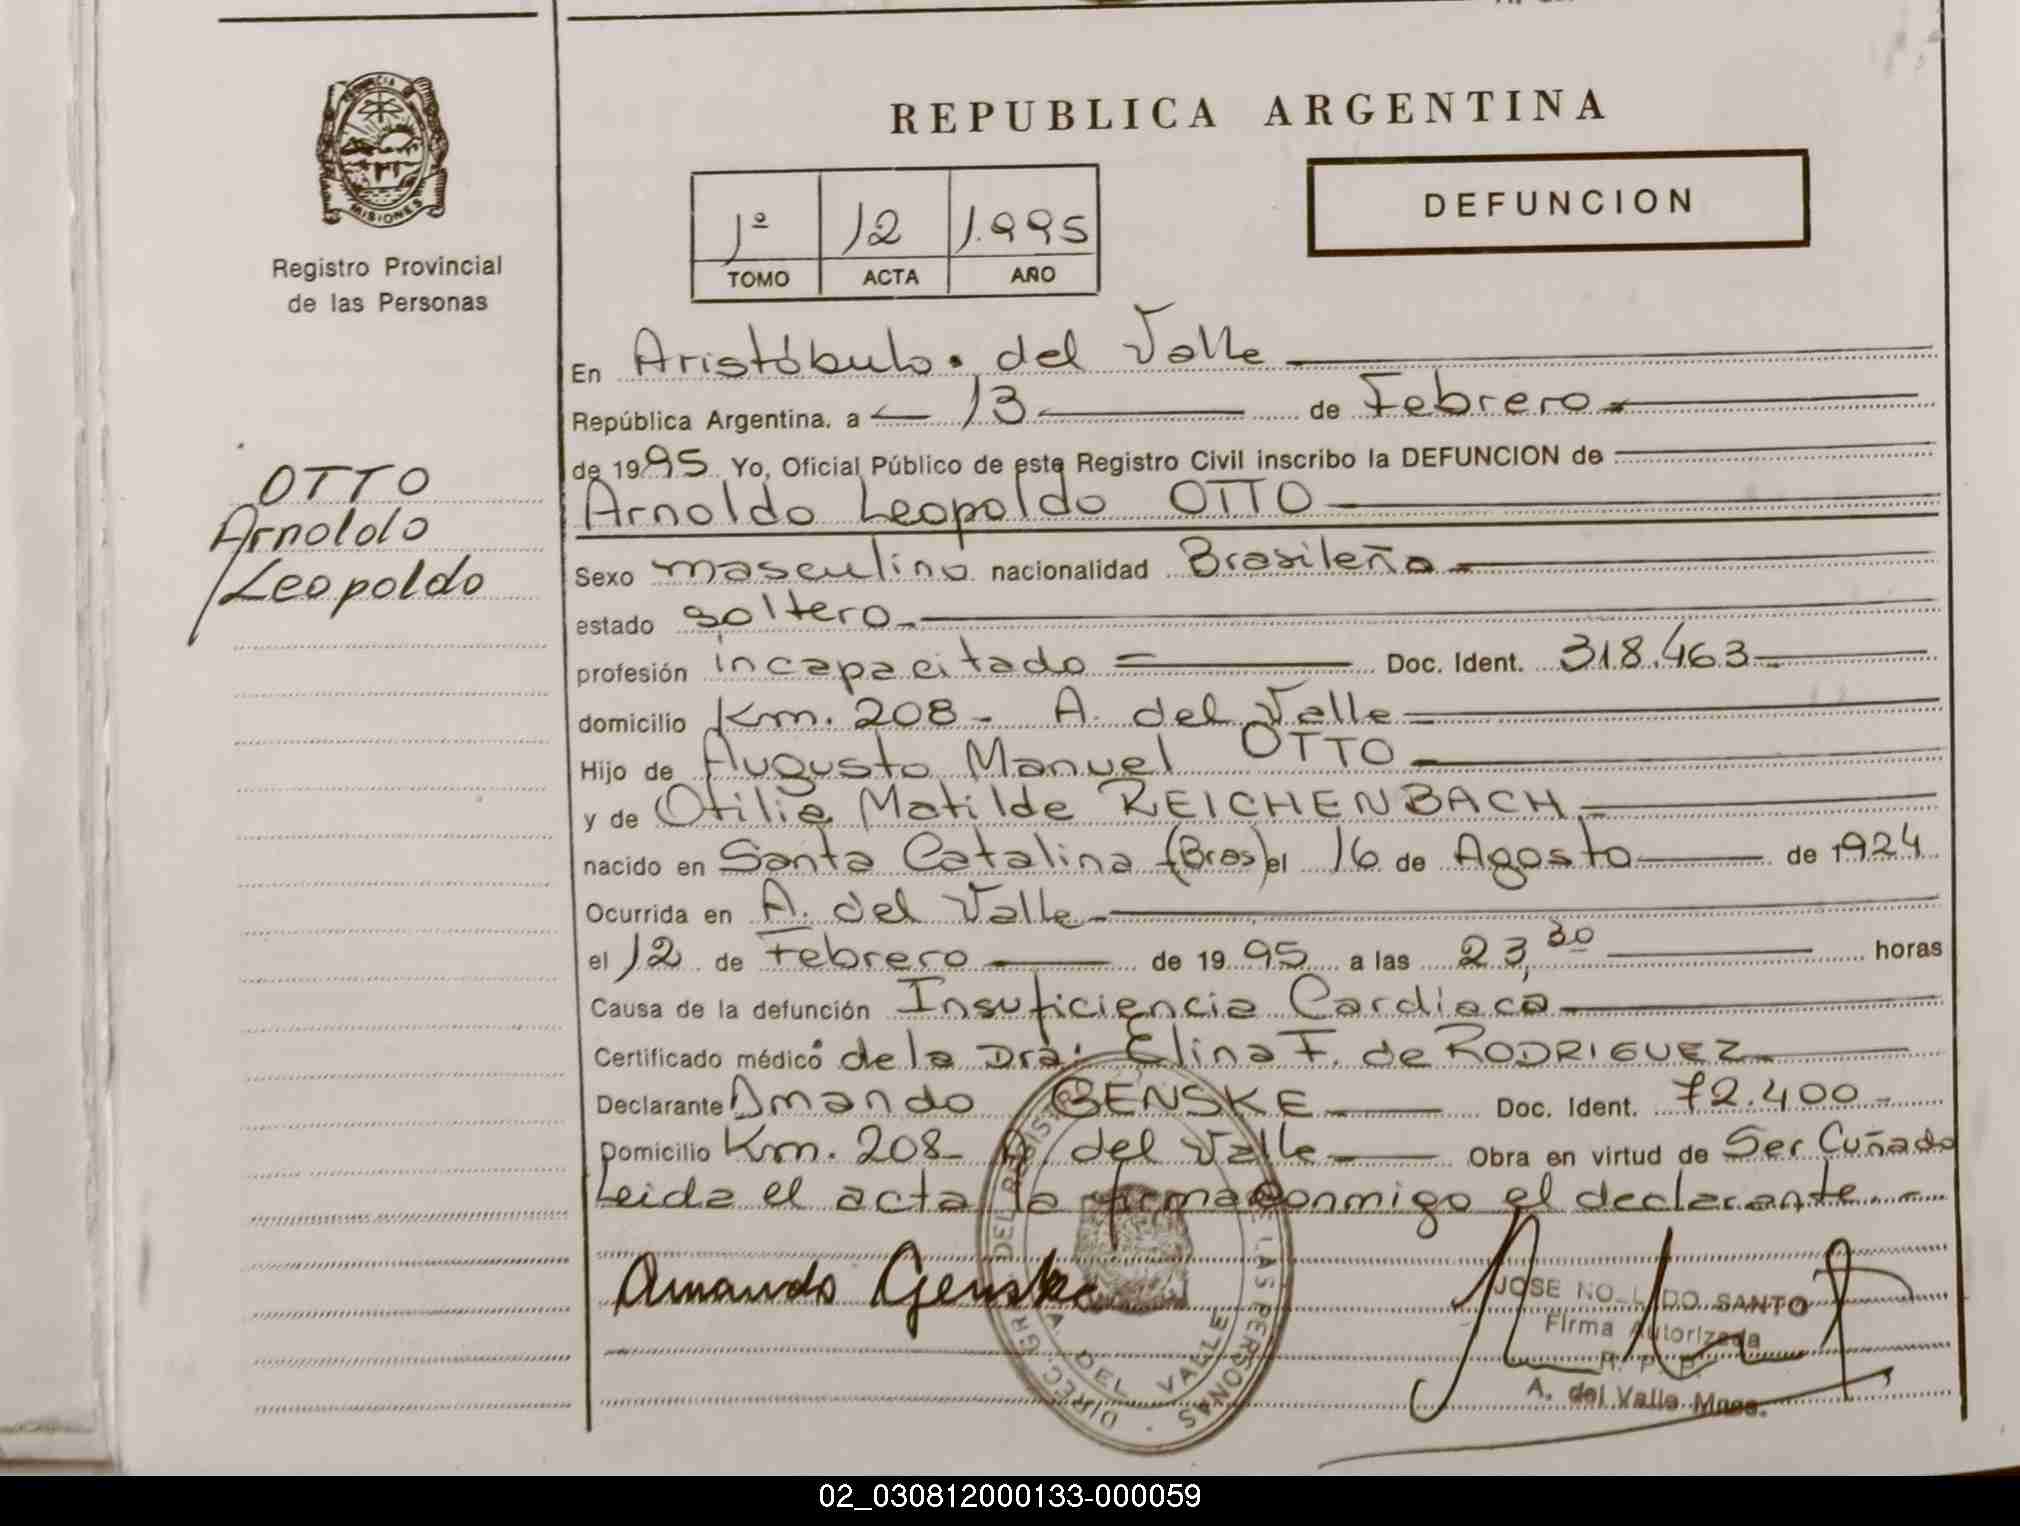 REPUBLICA ARGENTINA
PROVINCIA
MISIONES
Registro Provincial
de las Personas
1º 12 1.995
TOMO ACTA AÑO
DEFUNCION
OTTO
Arnoldo
Leopoldo
En Aristóbulo del Valle
República Argentina, a 13 de Febrero
de 1995 Yo, Oficial Público de este Registro Civil inscribo la DEFUNCION de
Arnoldo Leopoldo OTTO
Sexo masculino nacionalidad Brasileña
estado soltero
profesión incapacitado Doc. Ident. 318.463
domicilio Km. 208 - A. del Valle
Hijo de Augusto Manuel OTTO
y de Otilia Matilde REICHENBACH
nacido en Santa Catalina (Bras) el 16 de Agosto de 1924
Ocurrida en A. del Valle
el 12 de Febrero de 1995 a las 23,30 horas
Causa de la defunción Insuficiencia Cardiaca
Certificado médico de la Dra. Elina F. de RODRIGUEZ
Declarante Amando GENSKE Doc. Ident. 72.400
Domicilio Km. 208 - A. del Valle Obra en virtud de Ser Cuñado
Leida el acta la firma conmigo el declarante.
Amando Genske
DEL VALLE
LAS PERSONAS
JOSE SANTO
Firma Autorizada
R. P. P.
A. del Valle Mnes.
02_030812000133-000059